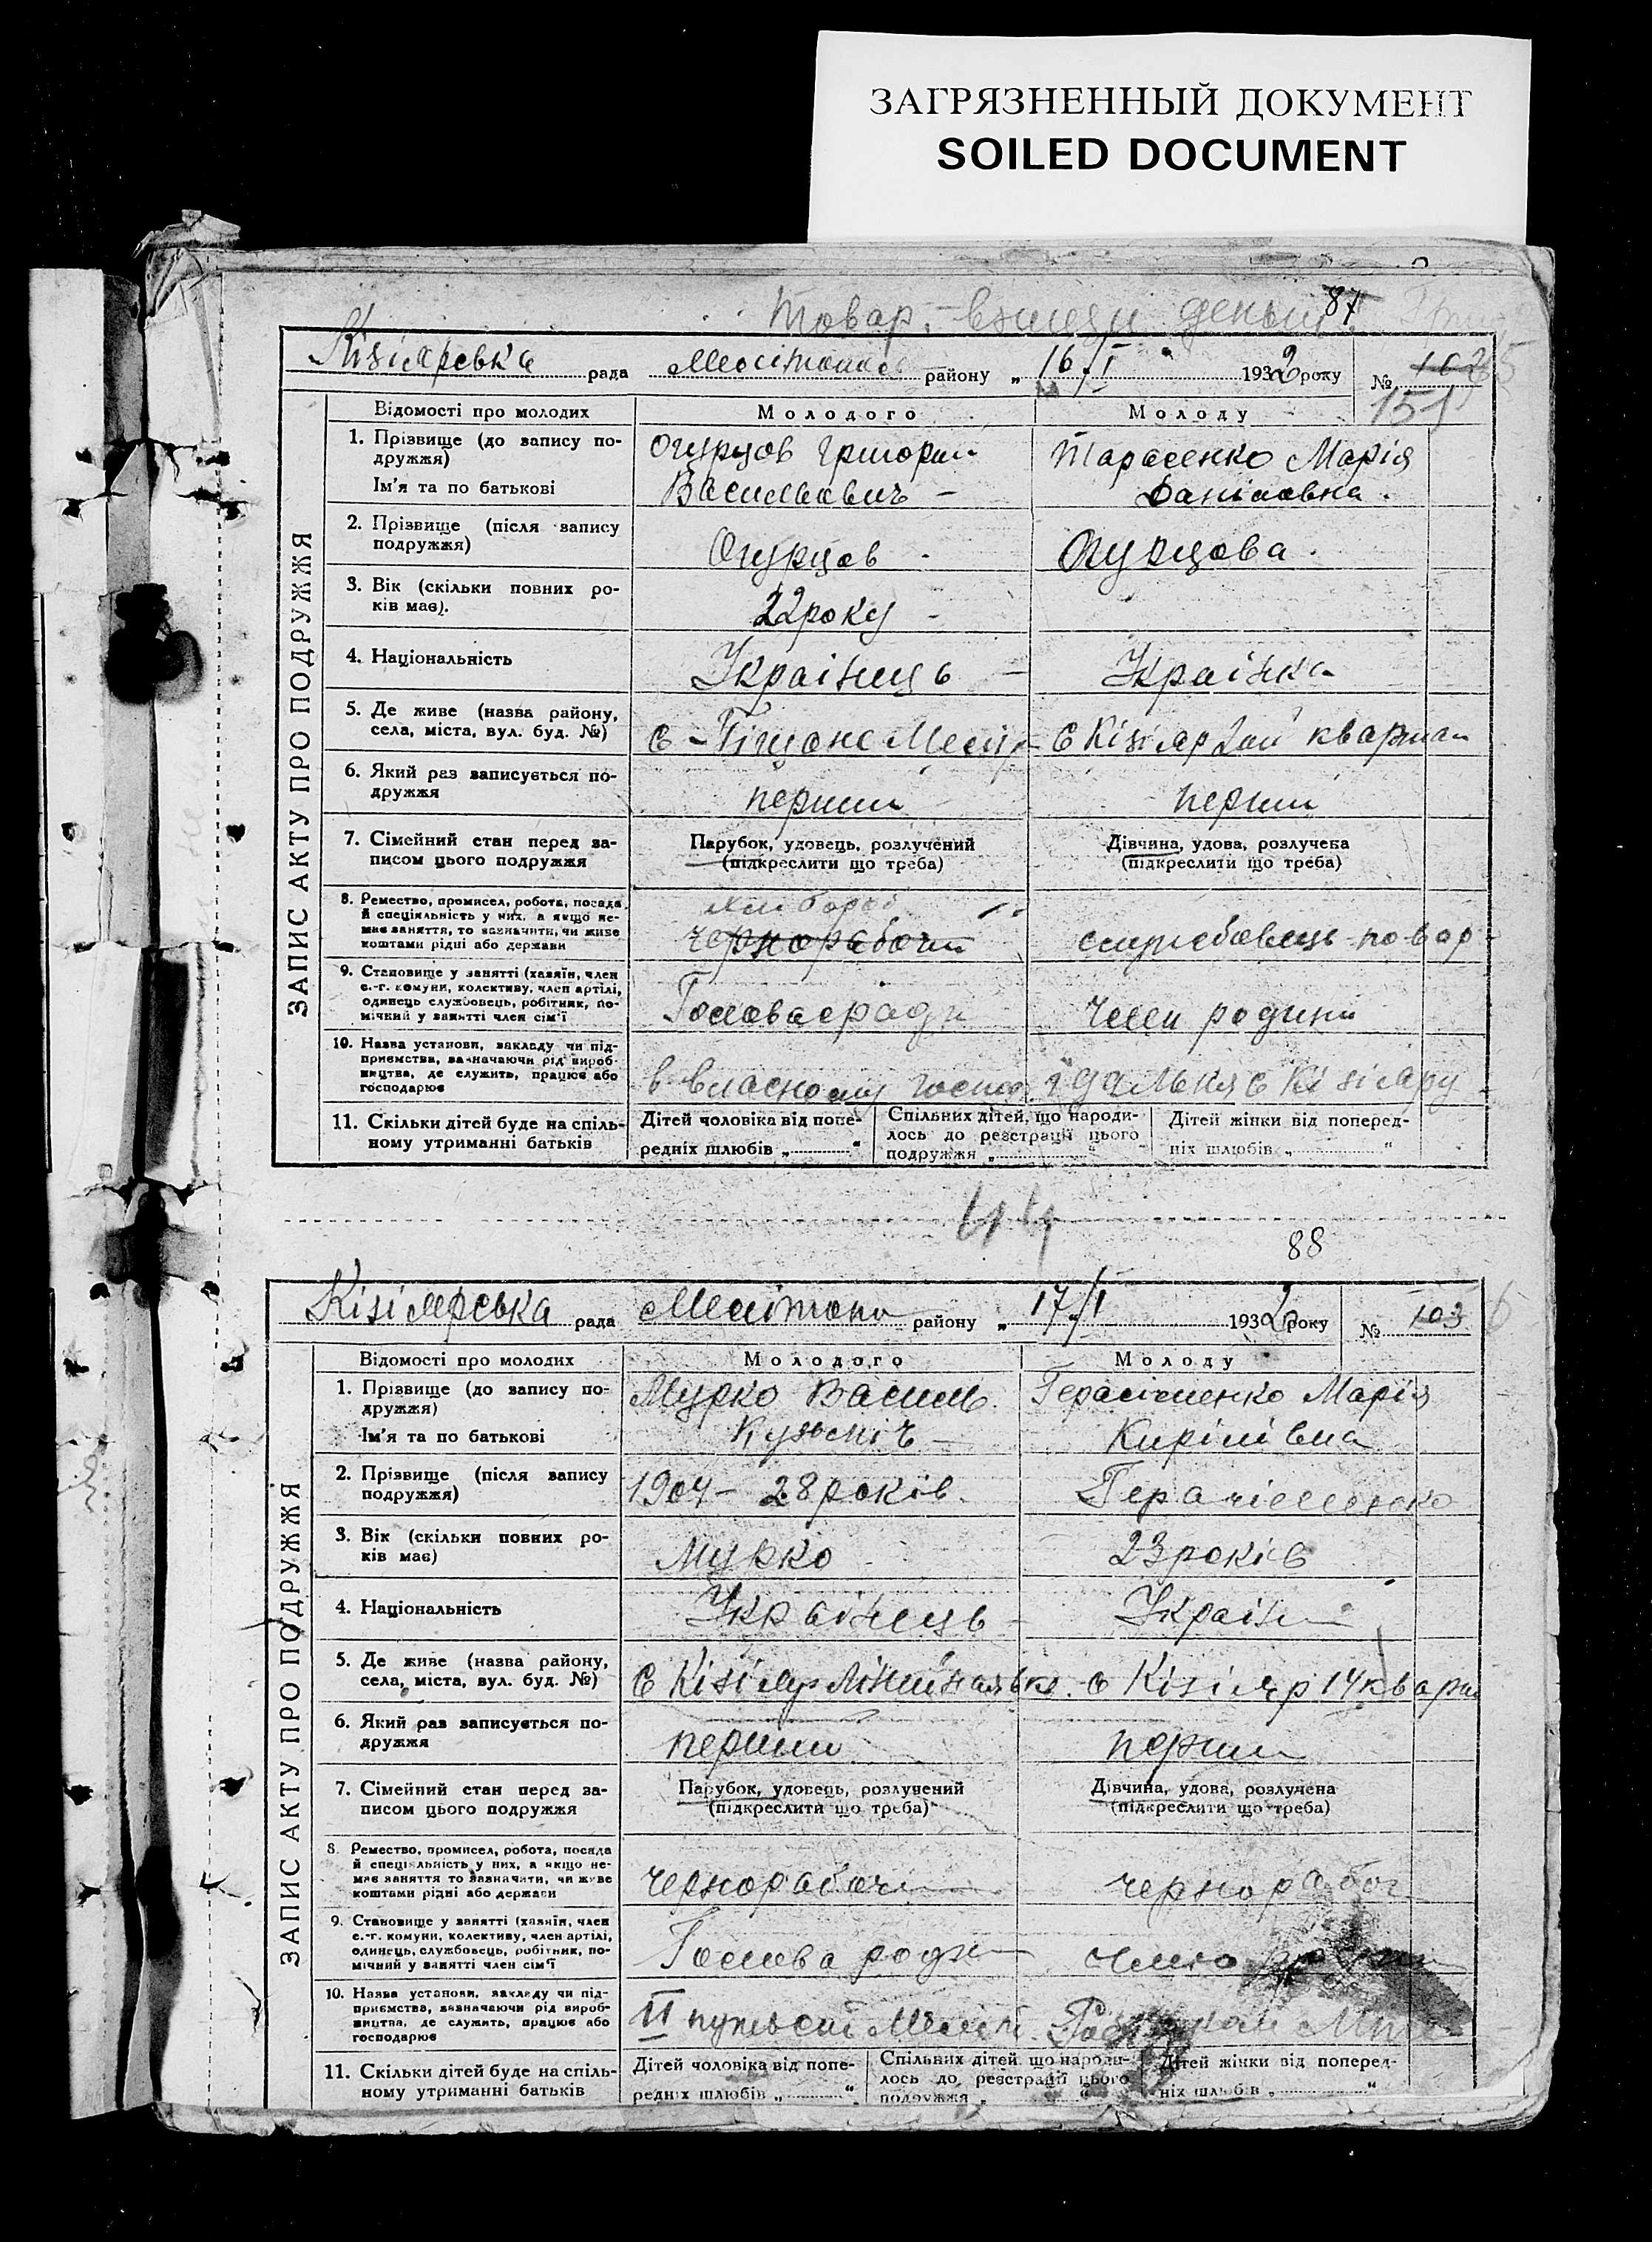 ЗАГРЯЗНЕННЫЙ ДОКУМЕНТ
SOILED DOCUMENT
87
Товар.
Кізіярська рада Меліто району „ 16/I 1932 року № 102
151
ЗАПИС АКТУ ПРО ПОДРУЖЖЯ
Відомості про молодих Молодого Молоду
1. Прізвище (до запису по-
дружжя)
Ім'я та по батькові
Огурцов Григорий
Васильович –
Тарасенко Марія
Даніловна.
2. Прізвище (після запису
подружжя)
Огурцов Огурцова.
3. Вік (скільки повних ро-
ків має).
22 року –
4. Національність Українець – Українка
5. Де живе (назва району,
села, міста, вул. буд. №)
с – с Кізіяр 2ой квартал
6. Який раз записується по-
дружжя
перший перший
7. Сімейний стан перед за-
писом цього подружжя
Парубок, удовець, розлучений
(підкреслити що треба)
Дівчина, удова, розлучена
(підкреслити що треба)
8. Ремество, промисел, робота, посада
й спеціяльність у них, а якщо не-
має заняття, то зазначити, чи живе
коштами рідні або держави
хлібороб
чернорабочий
служебовець повар –
9. Становище у занятті (хазяїн, член
с.-г. комуни, колективу, член артілі,
одинець службовець, робітник, по-
мічний у занятті член сім'ї
Голова родини
10. Назва установи, закладу чи під-
приємства, зазначаючи рід вироб-
ництва, де служить, працює або
господарює
в власному господ. їдальня с Кізіяру
11. Скільки дітей буде на спіль-
ному утриманні батьків
Дітей чоловіка від попе-
редніх шлюбів „ “
Спільних дітей, що народи-
лось до реєстрації цього
подружжя „ “
Дітей жінки від поперед-
ніх шлюбів „ “
88
Кізіярська рада Меліто району „ 17/I 1932 року № 103
ЗАПИС АКТУ ПРО ПОДРУЖЖЯ
Відомості про молодих Молодого Молоду
1. Прізвище (до запису по-
дружжя)
Ім'я та по батькові
Мурко Василь
Кузьміч –
Герасіменко Марія
Кирілівна
2. Прізвище (після запису
подружжя)
1904 – 28 років. Герасіменко
3. Вік (скільки повних ро-
ків має)
Мурко 23 років
4. Національність Українець –
5. Де живе (назва району,
села, міста, вул. буд. №)
с Кізіяр с Кізіяр 14 кварт
6. Який раз записується по-
дружжя
перший перший
7. Сімейний стан перед за-
писом цього подружжя
Парубок, удовець, розлучений
(підкреслити що треба)
Дівчина, удова, розлучена
(підкреслити що треба)
8. Ремество, промисел, робота, посада
й спеціяльність у них, а якщо не-
має заняття то зазначити, чи живе
коштами рідні або держави
чернорабочий чернорабоч
9. Становище у занятті (хазяїн, член
с.-г. комуни, колективу, член артілі,
одинець, службовець, робітник, по-
мічний у занятті член сім'ї
Голова
10. Назва установи, закладу чи під-
приємства, зазначаючи рід вироб-
ництва, де служить, працює або
господарює
II
11. Скільки дітей буде на спіль-
ному утриманні батьків
Дітей чоловіка від попе-
редніх шлюбів „ “
Спільних дітей, що народи-
лось до реєстрації цього
подружжя „ “
Дітей жінки від поперед-
ніх шлюбів „ “